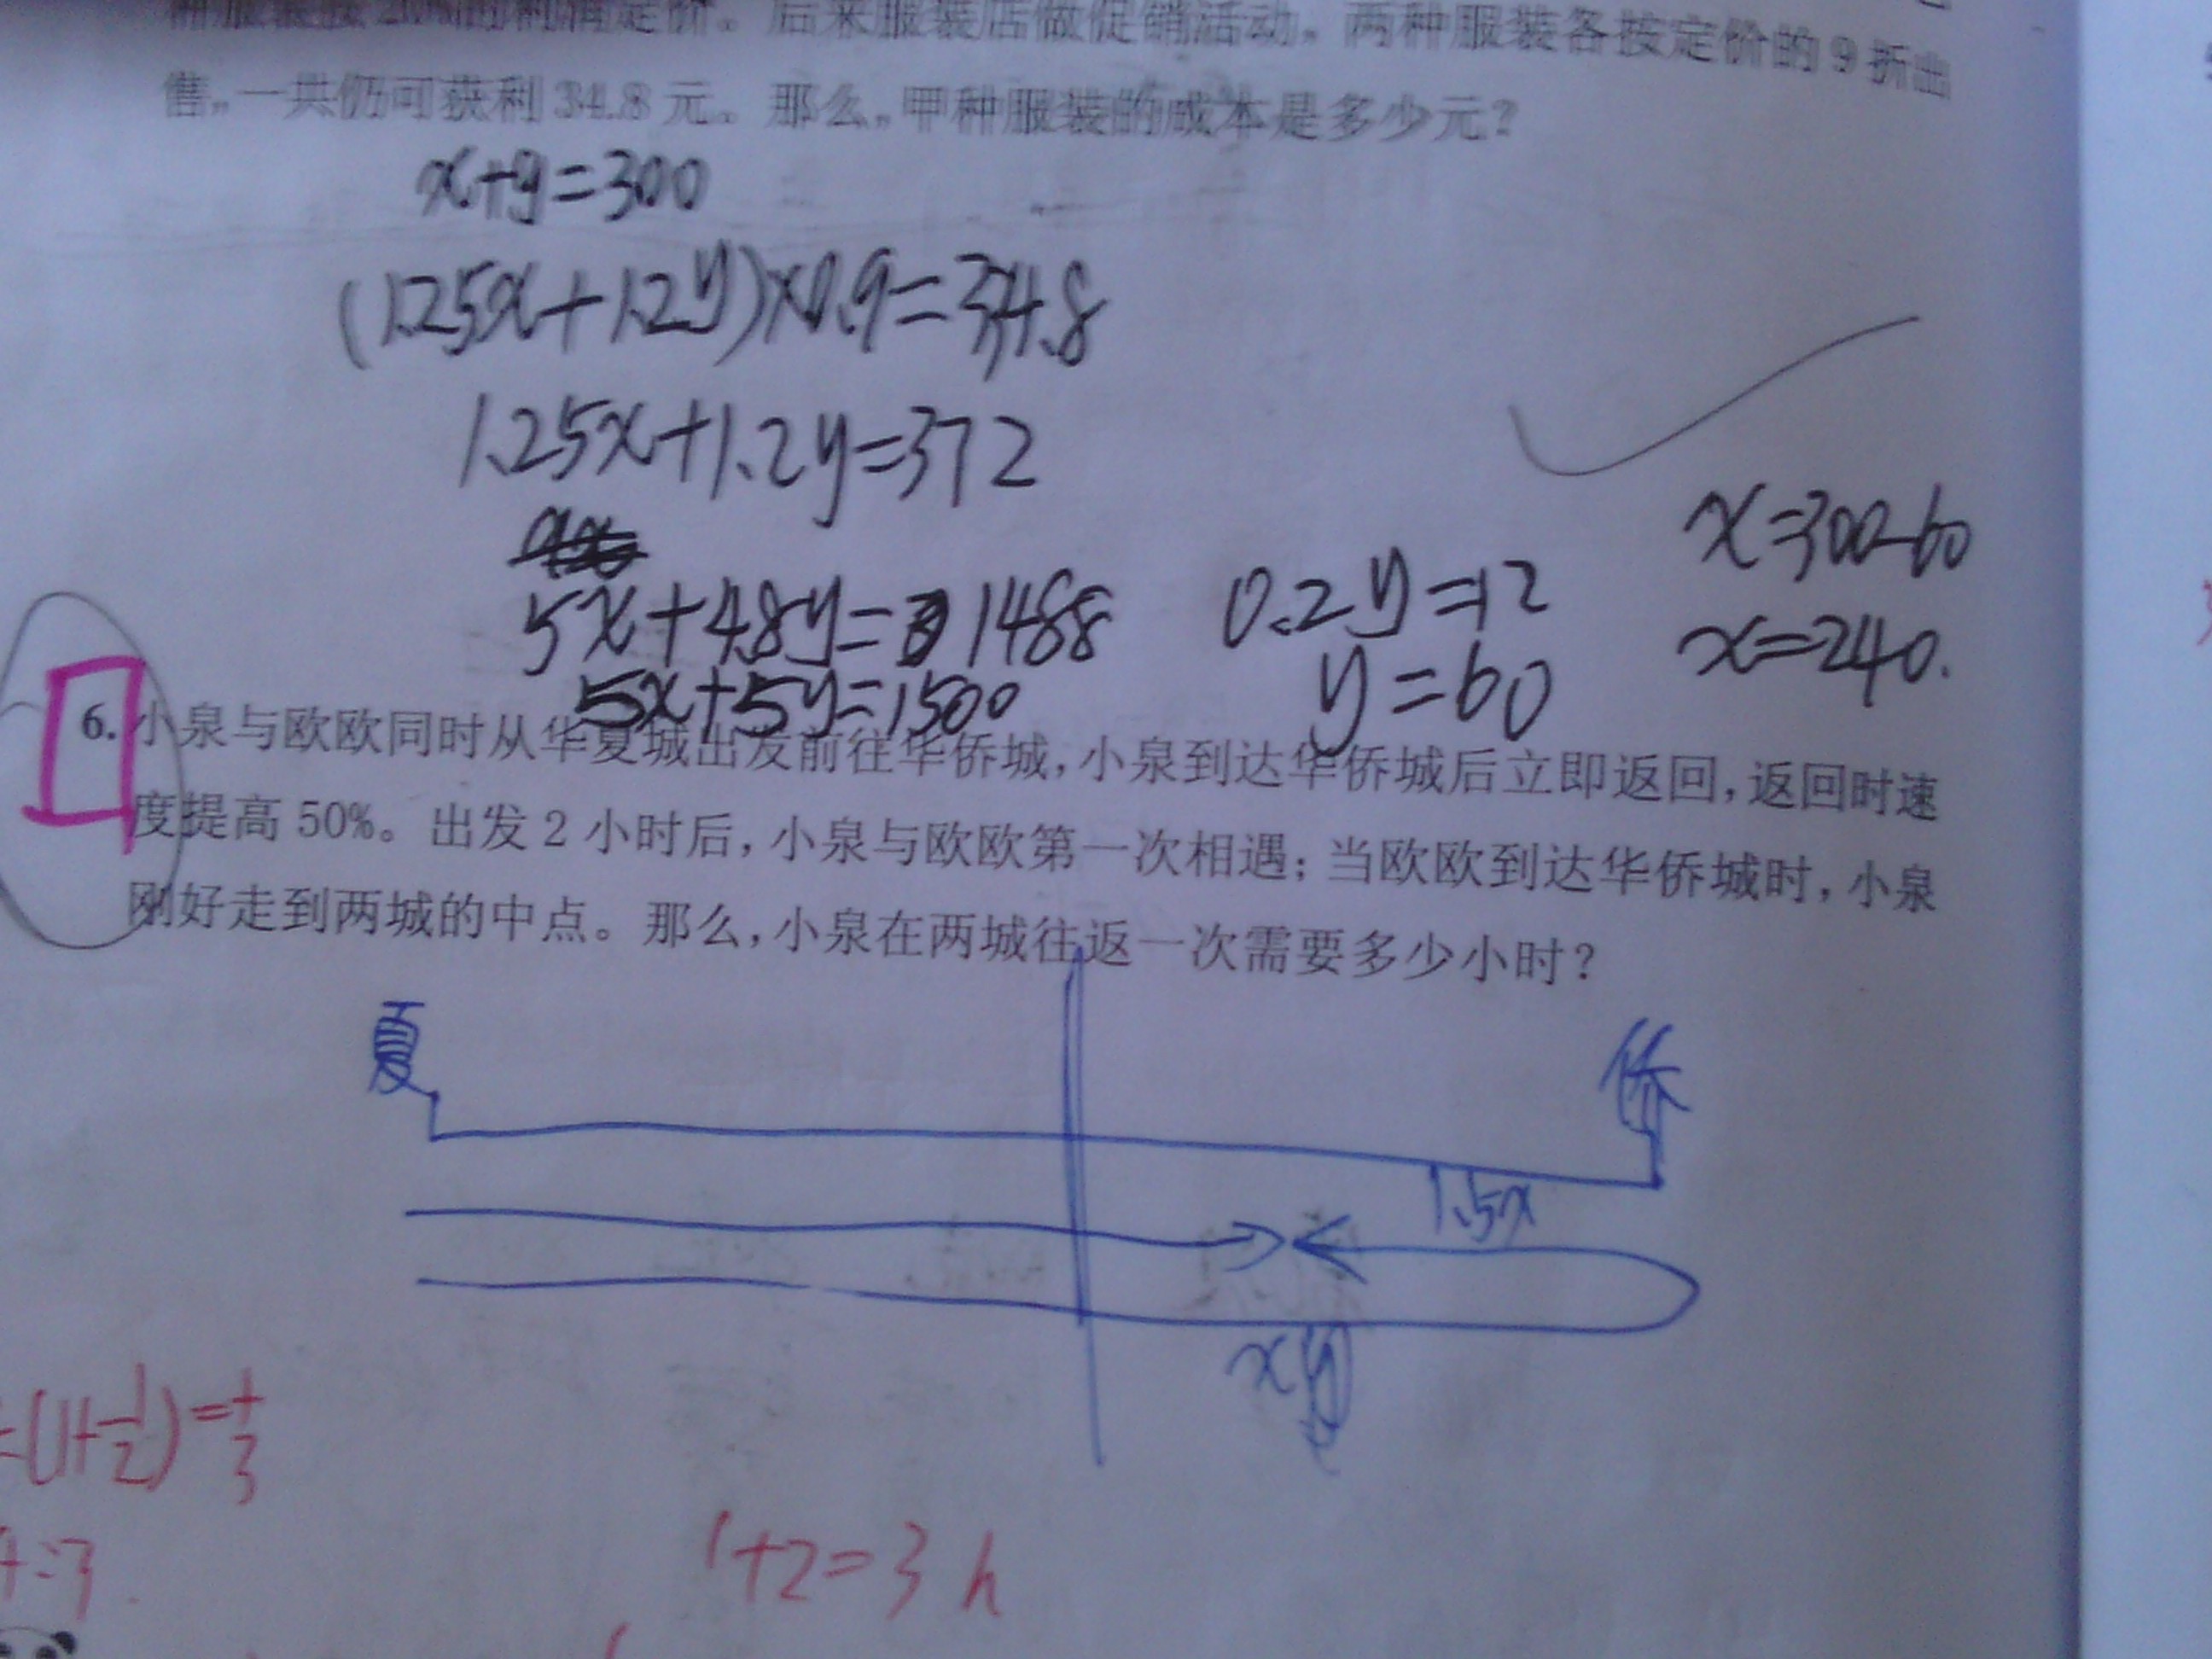 利润定价。后来服装店做促销活动，两种服装各按定价的9折出
售，一共仍可获利34.8元。那么，甲种服装的成本是多少元？
x+y=300
(1.25x+1.2y)×0.9=334.8
1.25x+1.2y=372
5x+4.8y=1488
5x+5y=1500
0.2y=12
y=60
x=300-60
x=240.
6. 小泉与欧欧同时从华夏城出发前往华侨城，小泉到达华侨城后立即返回，返回时速
度提高50%。出发2小时后，小泉与欧欧第一次相遇；当欧欧到达华侨城时，小泉
刚好走到两城的中点。那么，小泉在两城往返一次需要多少小时？
夏
侨
1.5x
x
(1+1/2)=1/3
1+2=3 h